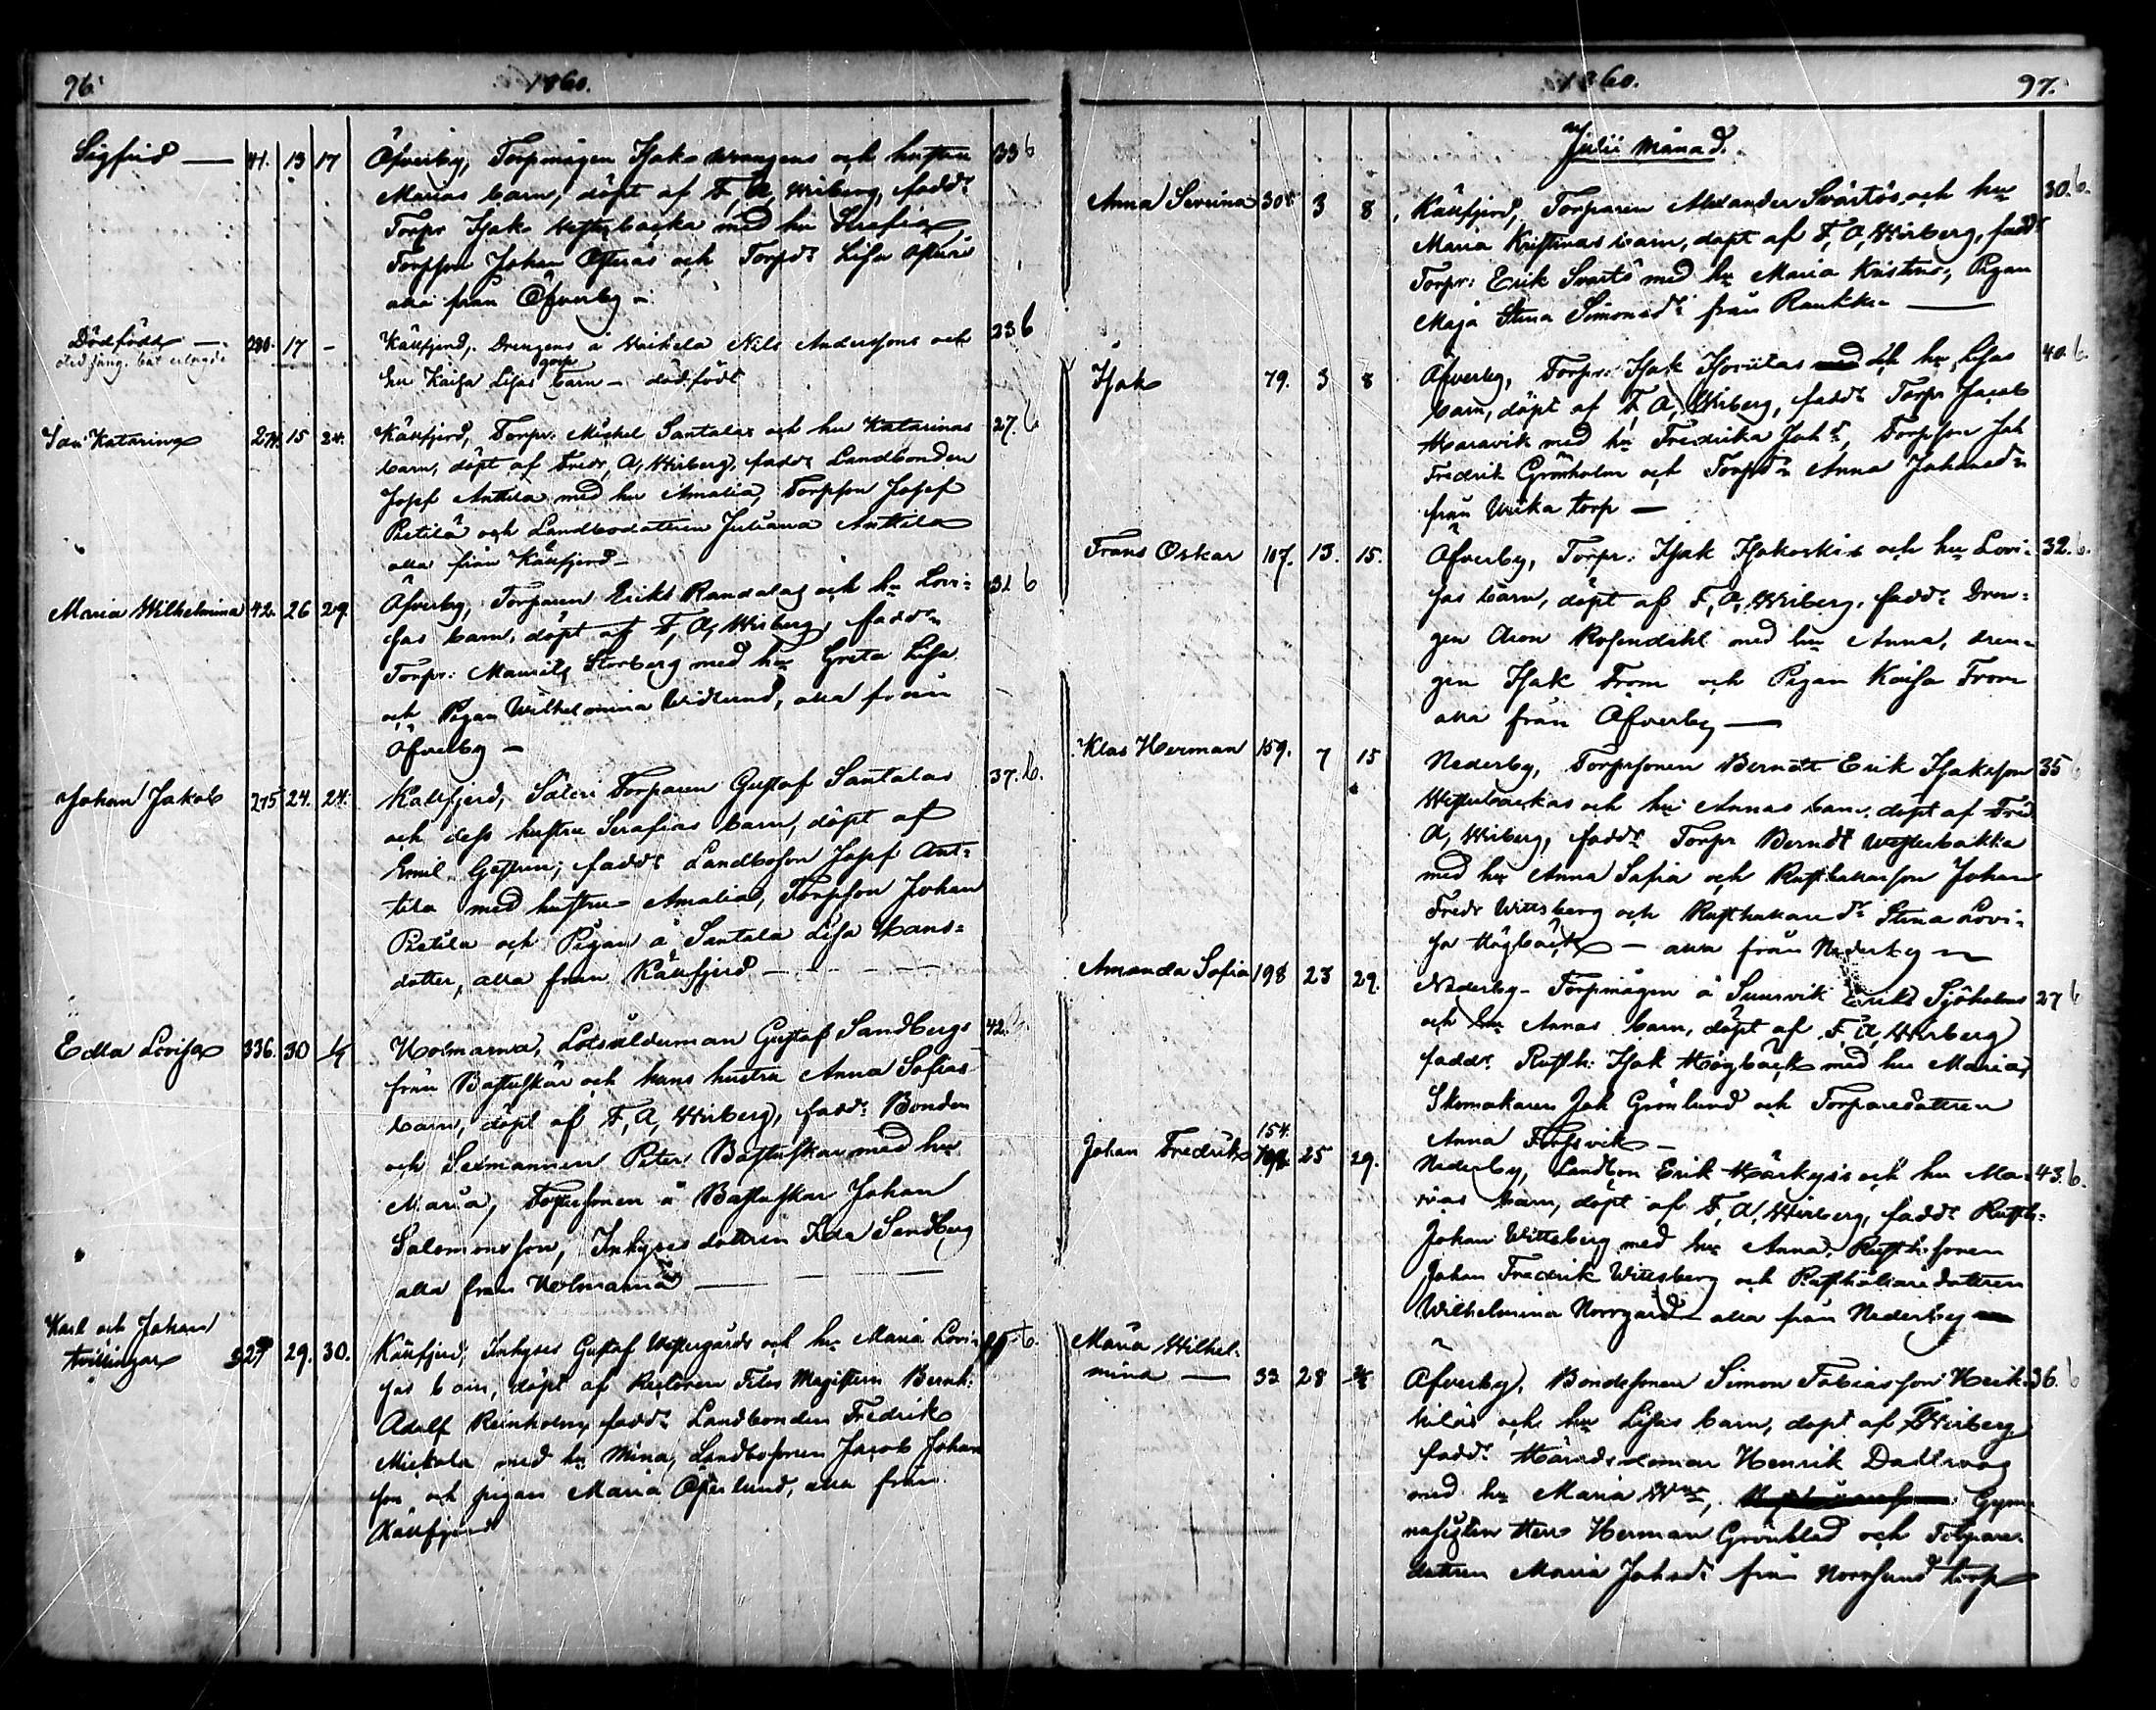 96. 1860.
Sigfrid — 41. 13 17 Öfverby, Torpmågen Isak Wrangens och hustru 33 b
Marias barn, döpt af F, A, Wiberg, fadd:
Torpr Isak Westerbacka med hu Serafia,
Torpson Johan Österås och Torpd: Lisa
alla från Öfverby –
Dödfödde — 280. 17 – Källfjerd, Drengens å Heikela Nils Anderssons och 23 b
hu Kaisa Lisas barn – dödfödt
Ida Katarina 274. 15 24. Källfjerd, Torpr. Mickel Santalas och hu Katarinas 27. b
barn, döpt af Fredr, A, Wiberg, fadd: Landbonden
Josef Anttila med hu Amalia, Torpson Josef
Pietilä och Landbodottren Juliana Anttila
alla från Källfjerd –
Maria Wilhelmina 42. 26 29. Öfverby, Torparen Eriks Randalas och hu Lovi= 31 b
sas barn, döpt af F, A, Wiberg, fadd:
Torpr: Maurits Storberg med hu Greta Lisa
och Pigan Wilhelmina Widlund, alla från
Öfverby –
Johan Jakob 275 24. 24. Källfjerd, Säteri Torparen Gustaf Santalas 37. b.
och dess hustru Serafias barn, döpt af
Emil Gestrin; fadd: Landboson Josef Ant=
tila med hustru Amalia, Torpson Johan
Pietila och Pigan å Santala Lisa Hans=
dotter, alla från Källfjerd –
Edla Lovisa 336. 30 1/7 Holmarna, Lotsålderman Gustaf Sandbergs 42. b.
från Bastuskär och hans hustru Anna Sofias
barn, döpt af F, A, Wiberg, fadd: Bonden
och Sexmannen Peter Bastuskär med hu
Maria, sonen å Bastuskär Johan
Salomonsson, Inhyses dottren Ida Sandberg
alla från Holmarna —
Karl och Johan
tvillingar 327 29. 30. Källfjerd, Inhyses Gustaf Westergårds och hu Maria Lovi= b.
sas barn, döpt af Rectoren Filos Magistern Bernh:
Adolf Reinholm, fadd: Landbonden Fredrik
Mickola med hu Mina, Landbosonen Jacob Johan
son och pigan Maria Österlund, alla från
Källfjerd
1860. 97.
Julii Månad.
Anna Severina 308. 3 8 Källfjerd, Torparen Alexander Svartös och hu 30. b.
Maria Kristinas barn, döpt af F, A, Wiberg, fadd:
Torpr: Erik Svartö med hu Maria Kristina, Pigan
Maja Stina Simonsd: från Raukka —
Isak 79. 3 8 Öfverby, Torpr: Isak och hu Lisas 40. b.
barn, döpt af F, A, Wiberg, fadd: Torpr Jacob
Haravik med hu Fredrika Joh:d, Torpson Joh
Fredrik Grönholm och Torpd:n Anna Johansd:n
från Wika torp —
Frans Oskar 107. 13. 15. Öfverby, Torpr: Isak och hu Lovi= 32. b.
sas barn, döpt af F, A, Wiberg, fadd: Dren=
gen Aron Rosendahl med hu Anna, dren=
gen Isak From och Pigan Kaisa From
alla från Öfverby —
Klas Herman 159. 7 15 Nederby, Torpsonen Berndt Erik Isaksson 35 b
Westerbackas och hu Annas barn, döpt af Fred.
A, Wiberg, fadd: Torpr Berndt Westerbacka
med hu Anna Sofia och Rusthållarson Johan
Fredr Wittsberg och Rusthållare d:r Stina Lovi=
sa Högback — alla från Nederby
Amanda Sofia 198 23 29. Nederby – Torpmågen å Sunsvik Eriks Sjöholms 27 b
och hu Annas barn, döpt af F, A, Wiberg
fadd: Rusth: Isak Högback med hu Maria,
Skomakaren Joh Grönlund och Torparedottren
Anna Forssvik –
Johan Fredrik 154. 25 29. Nederby, Landbon Erik Härkyss och hu Ma= 43. b.
rias barn, döpt af F, A, Wiberg, fadd: Rusth:
Johan Wittsberg med hu Anna, Rusth: sonen
Johan Fredrik Wittsberg och Rusthållare dottren
Wilhelmina Norrgård alla från Nederby —
Maria Wilhel=
mina — 33 28 Öfverby, Bondesonen Simon Tobiasson Heik= 36. b
kiläs och hu Lisas barn, döpt af F Wiberg
fadd: Häradsdomar Henrik Dallvag
med hu Maria W:na, Gym=
nasisten Herr Herman Grönblad och Torpare=
dottren Maria Johsd: från Norrsund torp